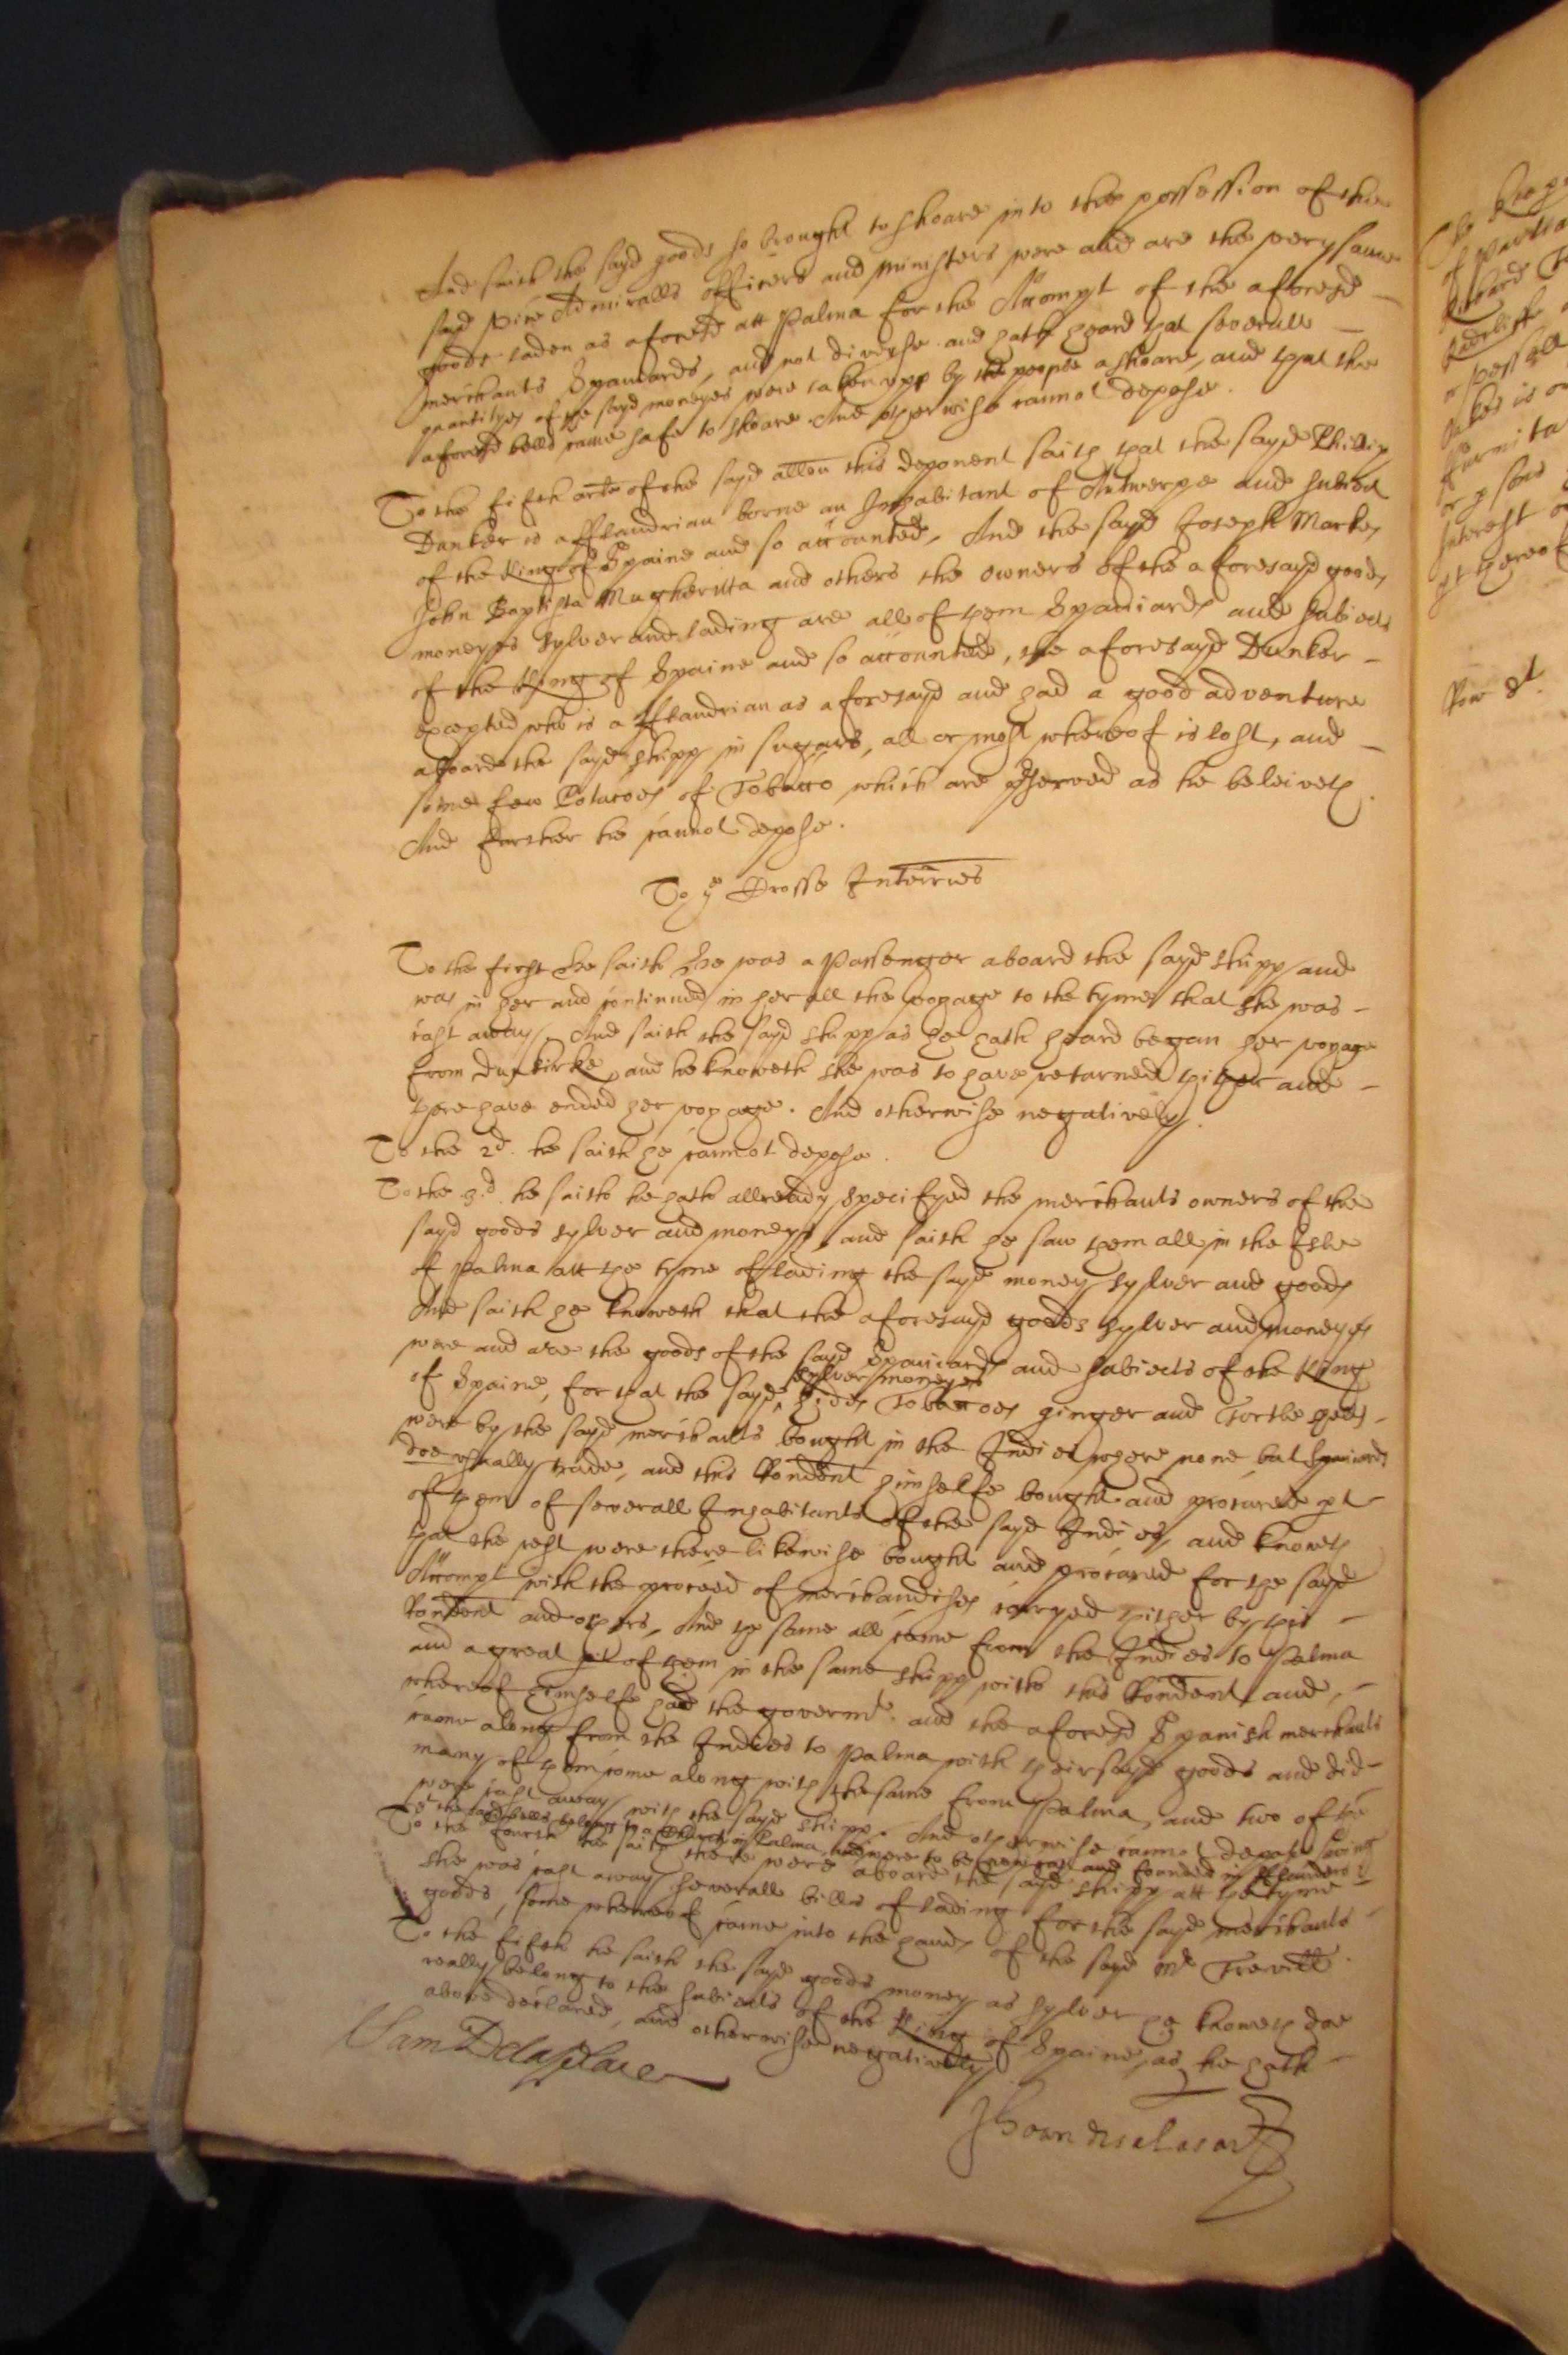 And saith the sayd goods so brought to shoare into the possession of the
sayd vice Admiralls officers and ministers were and are the very same
goods laden as aforesd att Palma for the Accompt of the aforesd
merchants Spaniards, and not diverse and hath heard that severall
quantityes of the sayd moneyes were taken upp by the people ashoare, and that the
aforesd bells came safe to shoare And otherwise cannot depose.
To the fifth arte of the sayd allon this deponent saith that the sayd Phillip
Dunker is a fflandrian borne an Inhabitant of Antwerpe and subiect
of the King of Spaine and so accounted, And the sayd Joseph Markes
John Baptista Mugheritta and others the owners of the aforesayd goods
moneyes sylver and lading are all of them Spaniards and subiects
of the King of Spaine and so accounted, the aforesayd Dunker
excepted who is a fflandrian as aforesayd and had a good adventure
aboard the sayd shipp in sugars, all or most whereof is lost, and
some few Potacoes of Tobacco which are pserved as he beleiveth.
And further he cannot depose.
To ye Crosse Interries
To the first he saith he was a Passenger aboard the sayd shipp and
was in her and continued in her all the voyage to the tyme that she was
cast away, And saith the sayd shipp as he hath heard began her voyage
from Dunkirke, and he knoweth she was to have returned thither and
there have ended her voyage. And otherwise negatively.
To the 2d. he saith he cannot depose.
To the 3d. he saith he hath allready specifyed the merchants owners of the
sayd goods sylver and moneys, and saith he saw them all in the Isle
of Palma att the tyme of lading the sayd money sylver and goods
And saith he knoweth that the aforesayd goods sylver and moneyes
were and are the goods of the sayd Spaniards and subiects of the King
of Spaine, for that the sayd sylver moneyes hides Tobaccoes ginger and Tortle shells
were by the sayd merchants bought in the Indies where none but Spaniards
doe usually trade, and this Rondent himselfe bought and procured pt
of them of severall Inhabitants of the sayd Indies, and knoweth
that the rest were there likewise bought and procured for the sayd
Accompt with the proceed of merchandises carryed thither by this
Rondent and others, And the same all came from the Indies to Palma
and a great pt of them in the same shipp with this Rondent and,
whereof himselfe had the governmt. and the aforesd Spanish merchants
came along from the Indies to Palma with their sayd goods and did
many of them come along with the same from Palma, and two of the
were cast away with the sayd shipp. And otherwise cannot depose saving
yt the sayd bells belong to a Church in Palma and were to be new cast and founded in fflanders
To the fourth he saith there were aboard the sayd shipp att the tyme
she was cast away severall bills of lading for the sayd merchants
goods, some whereof came into the hands of the sayd Mr Trevill.
To the fifth he saith the sayd goods money as sylver he knoweth doe
really belong to the subiects of the King of Spaine, as he hath
above declared, and otherwise negatively.
Sam Delaplace